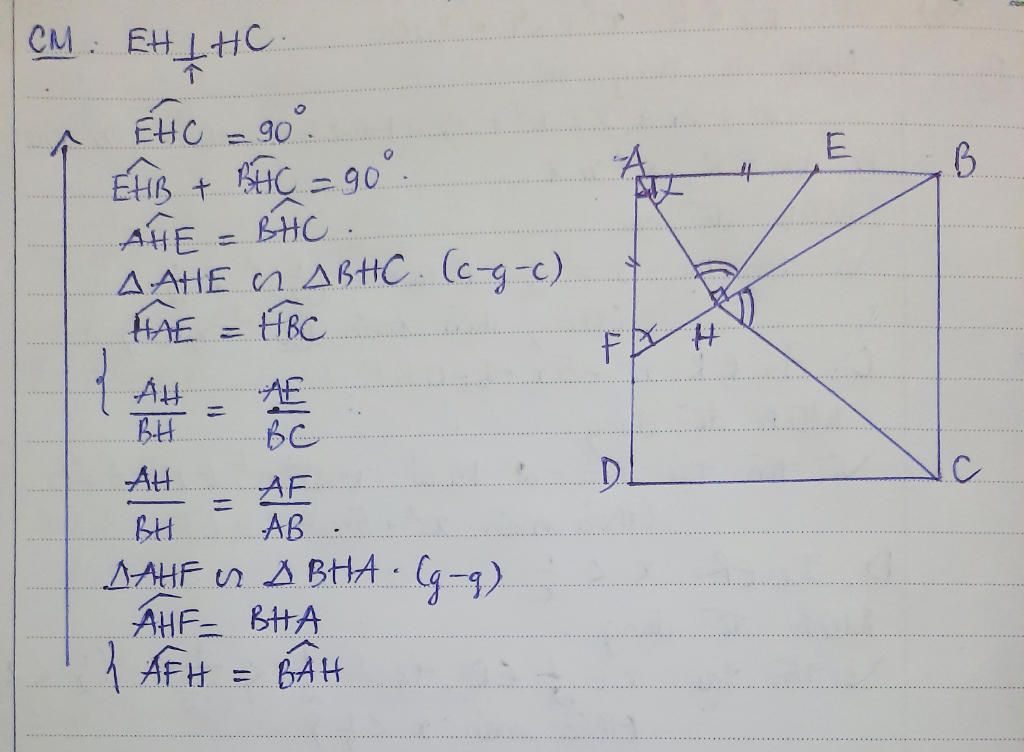 CM : EH ⊥ HC.
↑
EHC = 90°.
EHB + BHC = 90°.
AHE = BHC.
Δ AHE ∽ Δ BHC. (c-g-c)
HAE = HBC
{ AH/BH = AE/BC
AH/BH = AF/AB .
Δ AHF ∽ Δ BHA. (g-g)
AHF = BHA
{ AFH = BAH
A E B
F H
D C